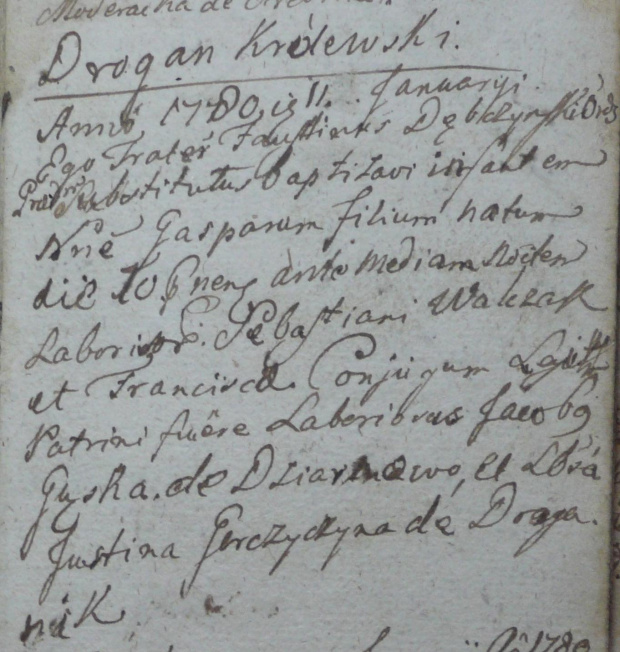 Moderacka de
Drogan Królewski.
Anno 1780, is 11. Januaryi
Ego Frater Faustinus Dębczynski Ord:
Præd: Substitutus baptizavi infantem
Nne Gasparum filium natum
die 10 Eneng ante mediam Noctem
Laborios: Sebastiani Walczak
et Francisca Conjugum Legitt:
Patrini fuêre Laboriosus Jacobg
Gęska de Dziarnowo, et Lbsa
Justina Gerczyczyna de Droga.
nik
1780